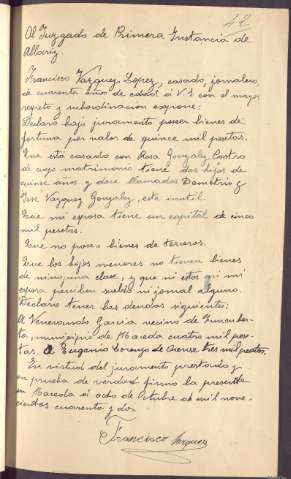 42
Al Juzgado de Primera Instancia de
Allariz.
Francisco Vazquez Lopez, casado, jornalero,
de cuarenta años de edad á V.S. con el mayor
respeto y subordinacion expone:
Declaro bajo juramento poseer bienes de
fortuna por valor de quince mil pesetas.
Que está casado con Rosa Gonzalez Castro
de cuyo matrimonio tiene dos hijos de
quince años y doce llamados Demetrio y
Jose Vazquez Gonzalez, este inutil.
Que mi esposa tiene un capital de cinco
mil pesetas.
Que no posee bienes de terceros.
Que los hijos menores no tienen bienes
de ninguna clase, y que ni estos ni mi
esposa perciben sueldo ni jornal alguno.
Declaro tener las deudas siguiente:
A Venerando Garcia vecino de
municipio de Maceda cuatro mil pese-
tas. A Eugenio Lorenzo de Orense tres mil pesetas.
En virtud del juramento prestando y
en prueba de verdad firmo la presente
en Maceda á ocho de Octubre de mil nove-
cientos cuarenta y dos
Francisco Vazquez